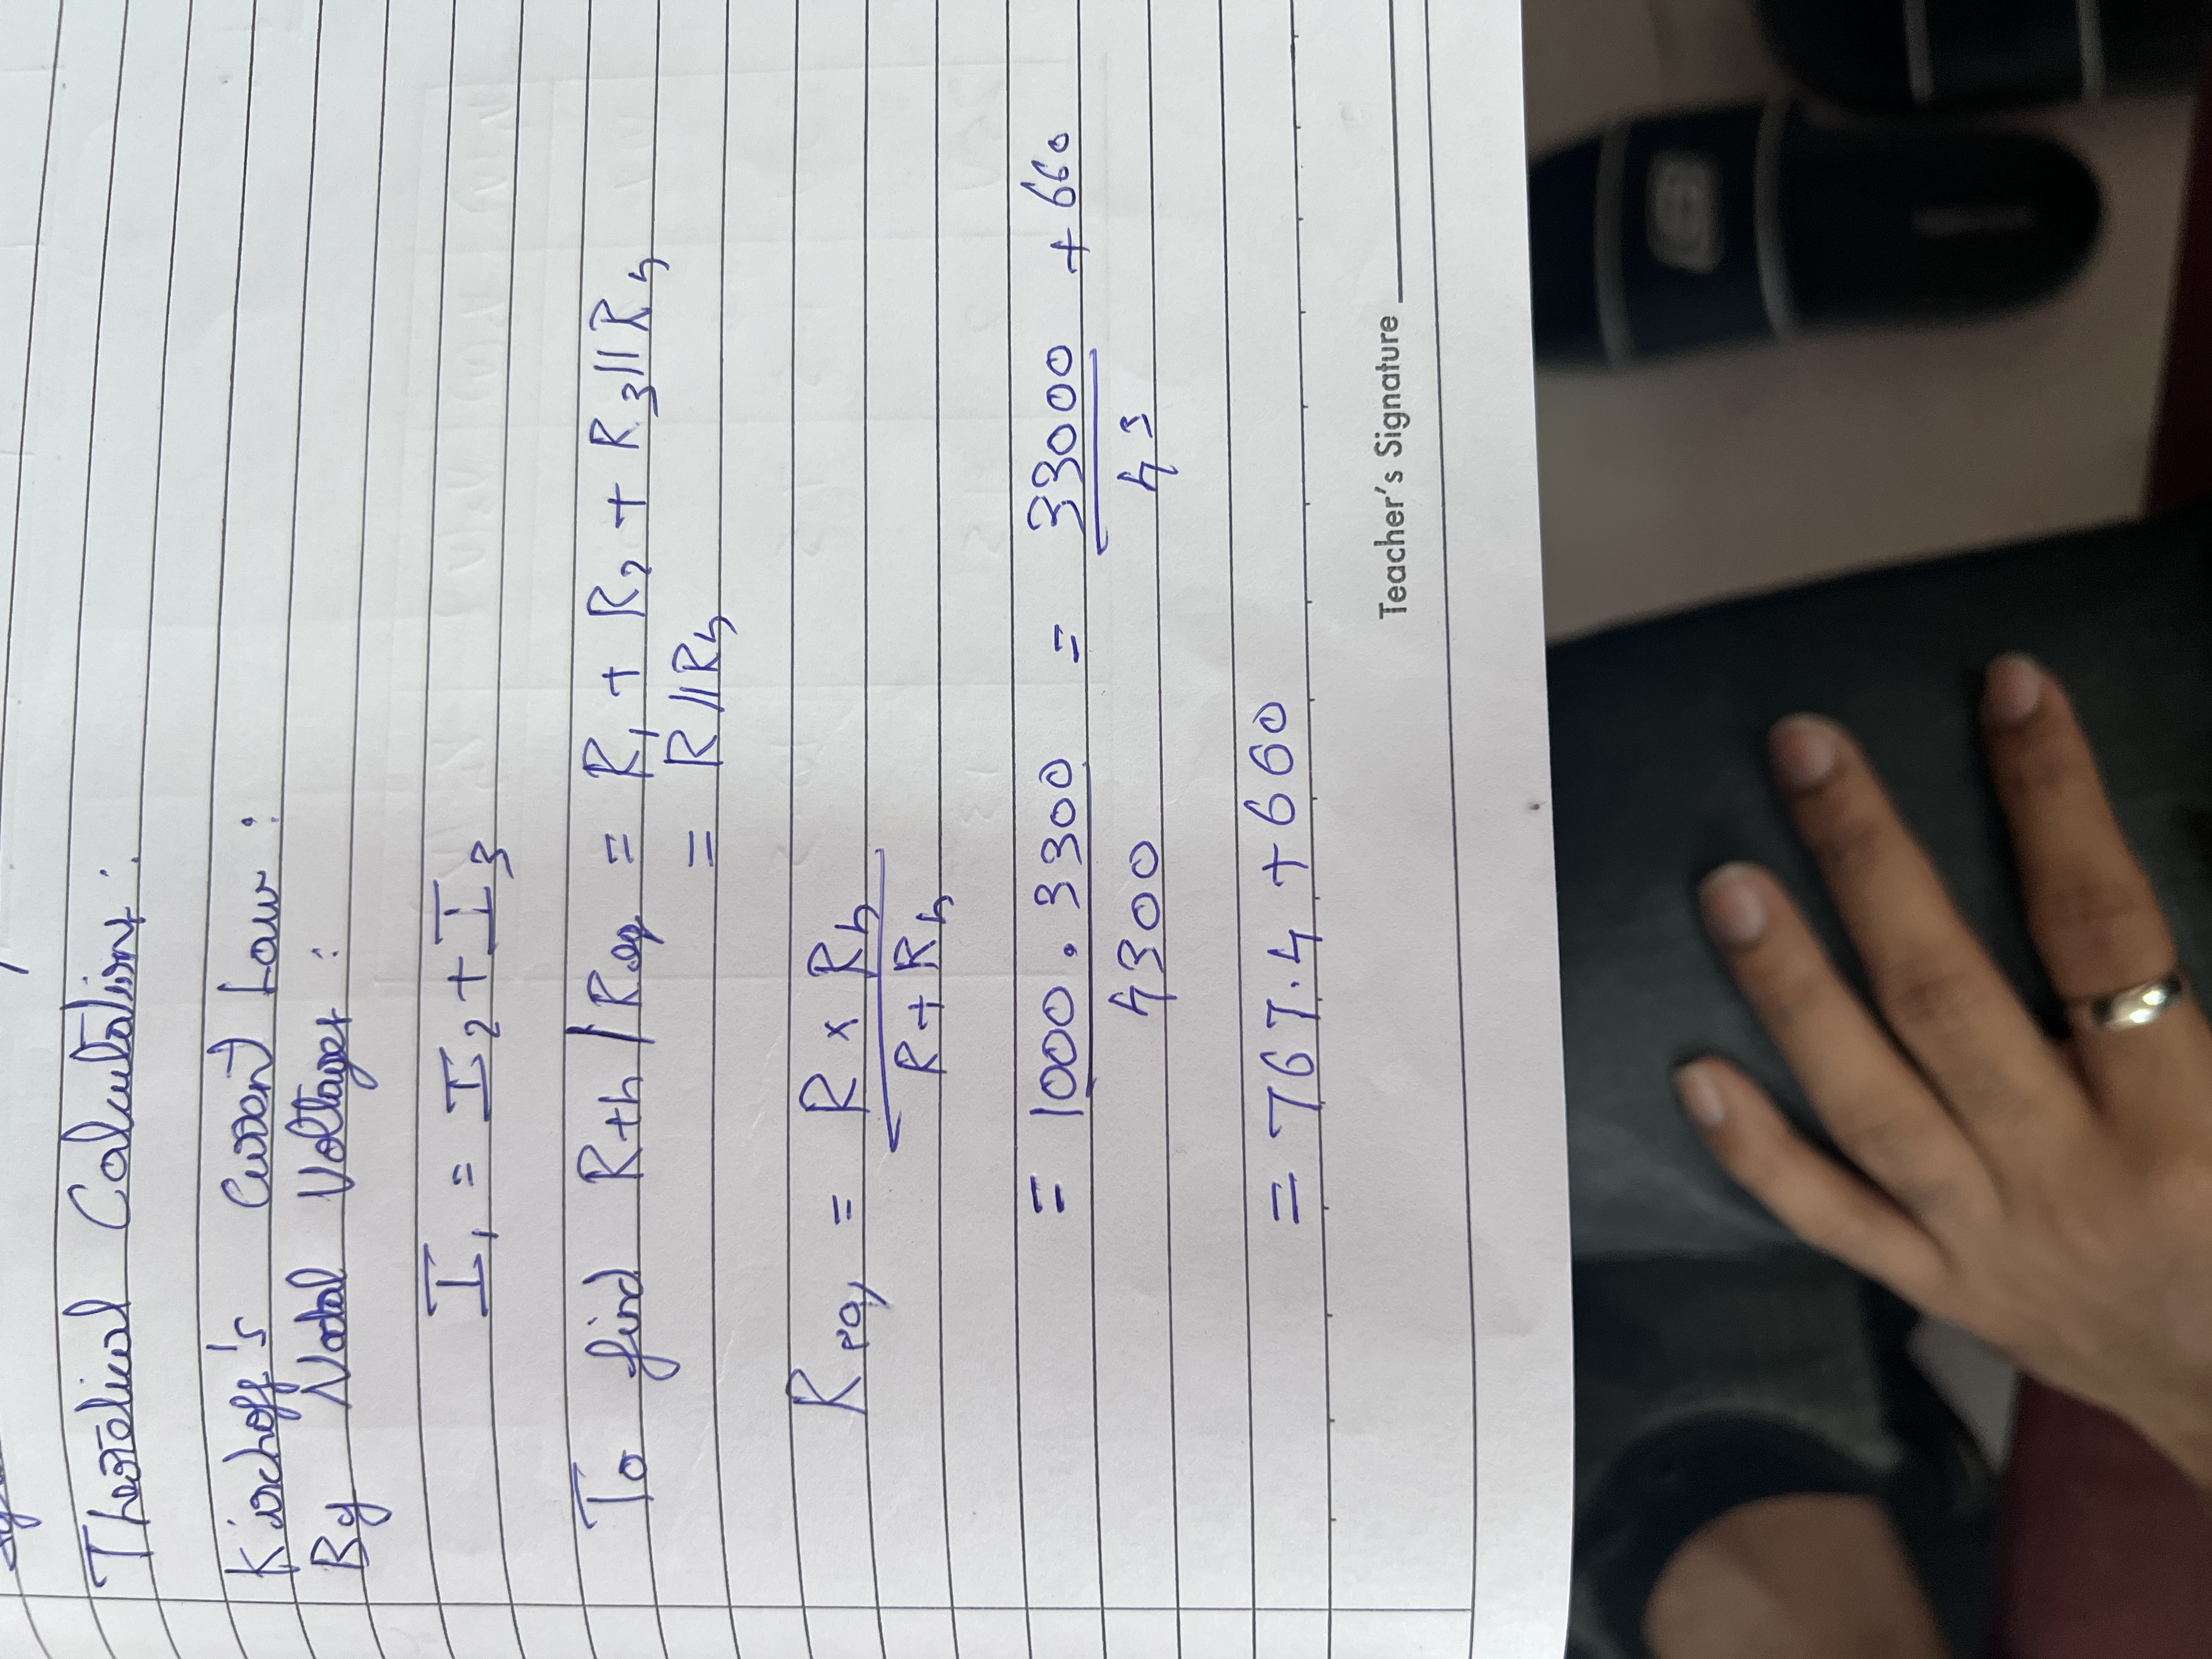 Theoretical Calculations:
Kirchoff's Current Law:
By Nodal Voltages:
I₁ = I₂ + I₃
To find Rth / Req = R₁ + R₂ + R₃ || R₄
= R || R₄
Req = R × R₄
R + R₄
= 1000 . 3300 = 33000 + 660
4300 43
= 767.4 + 660
Teacher's Signature